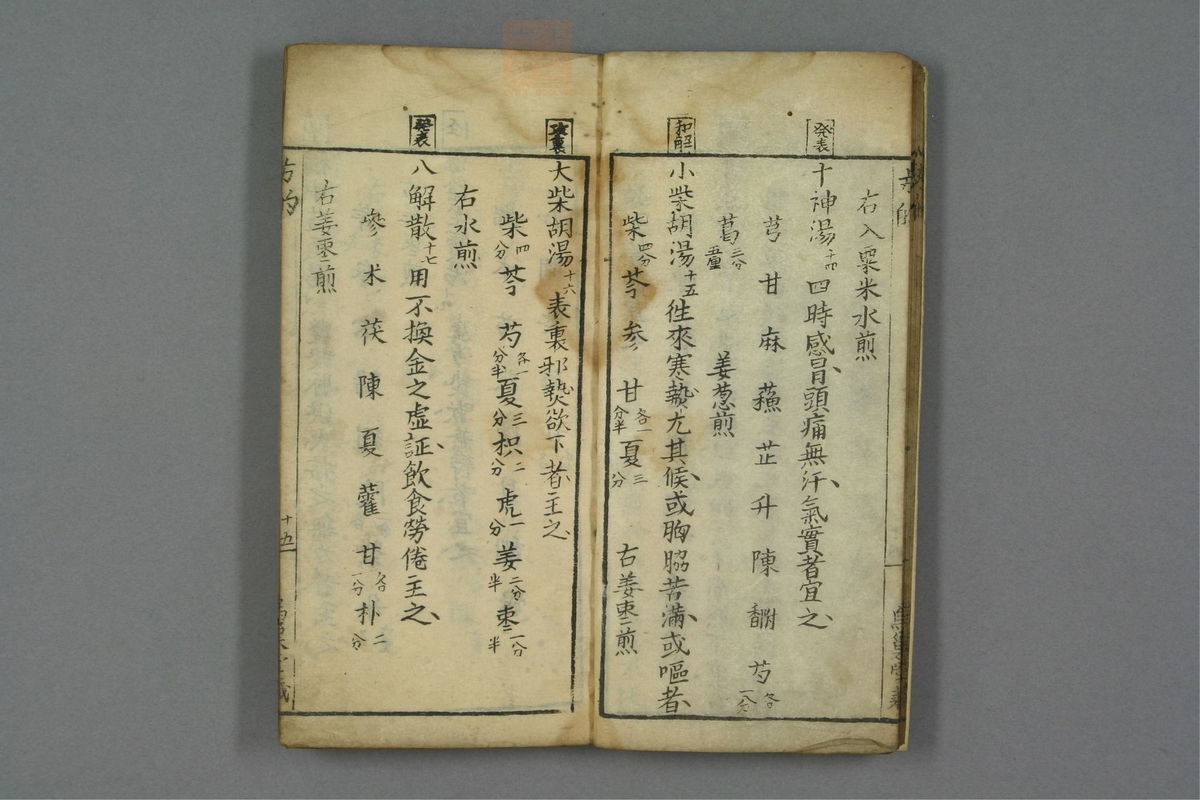 右入粟米水煎
発表
十神湯十四四時感冒頭痛無汗氣實者宜之
芎甘麻蘓芷升陳附芍各一分
葛二分五厘 姜葱煎
和解
小柴胡湯十五徃來寒熱尤其候或胸脇苦滿或嘔者
柴四分芩参甘各一分半夏三分 右姜棗煎
攻裏
大柴胡湯十六表裏邪熱欲下者主之
柴四分芩芍各一分半夏三分枳二分虎一分姜二分半棗一分半
右水煎
発表
八解散十七用不換金之虚証飲食勞倦主之
參朮茯陳夏藿甘各一分朴二分
右姜棗煎
十五